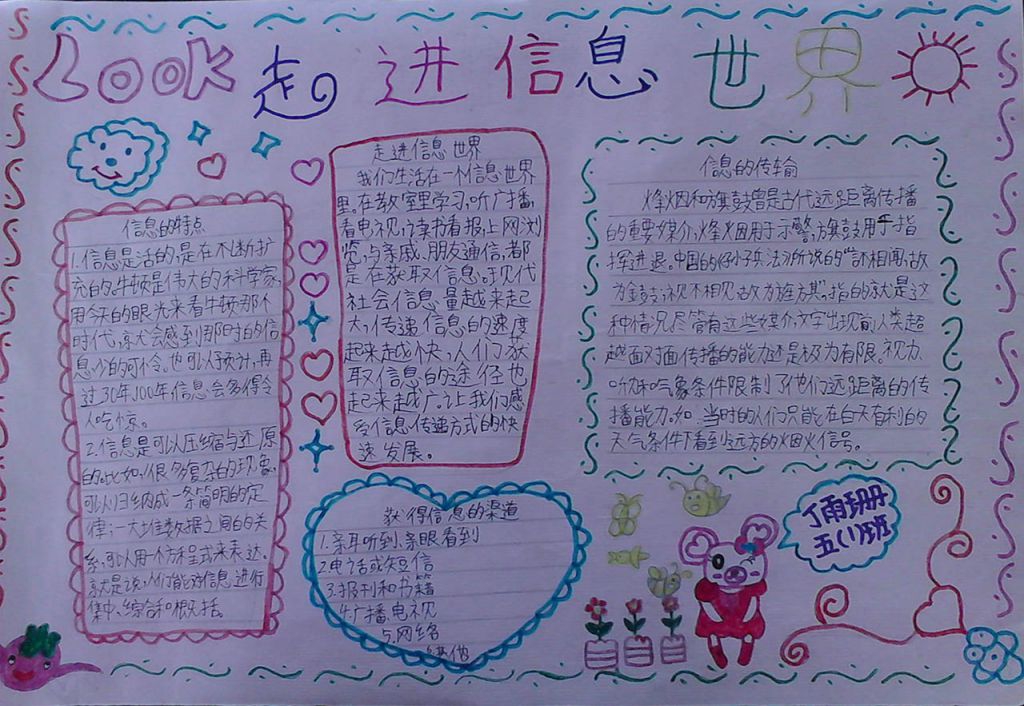 Look 走进信息世界
信息的特点
1.信息是活的,是在不断扩
充的。牛顿是伟大的科学家,
用今天的眼光来看牛顿那个
时代,就会感到那时的信
息少的可怜。也可以预计,再
过30年、100年信息会多得令
人吃惊。
2.信息是可以压缩与还原
的。比如,很多复杂的现象,
可以归纳成一条简明的定
律;一大堆数据之间的关
系,可以用一个方程式来表达。
就是说,人们能对信息进行
集中、综合和概括。
走进信息世界
我们生活在一个信息世界
里。在教室里学习,听广播,
看电视,读书看报,上网浏
览,与亲戚、朋友通信,都
是在获取信息。现代
社会信息量越来起
大,传速信息的速度
起来越快,人们获
取信息的途径也
起来越广。让我们感
受信息传速方式的快
速发展。
获得信息的渠道
1.亲耳听到、亲眼看到
2.电话或短信
3.报刊和书籍
4.广播电视
5.网络
其他
信息的传输
烽烟和旗鼓曾是古代远距离传播
的重要媒介,烽烟用于示警,旗鼓用于指
挥进退。中国的《孙子兵法》所说的"言不相闻,故
为金鼓;视不相见,故为旌旗。"指的就是这
种情况。尽管有这些媒介,文字出现前,人类超
越面对面传播的能力还是极为有限。视力、
听和气象条件限制了他们远距离的传
播能力,如,当时的人们只能在白天有利的
天气条件下看到远方的烟火信号。
丁雨珊
五(1)班